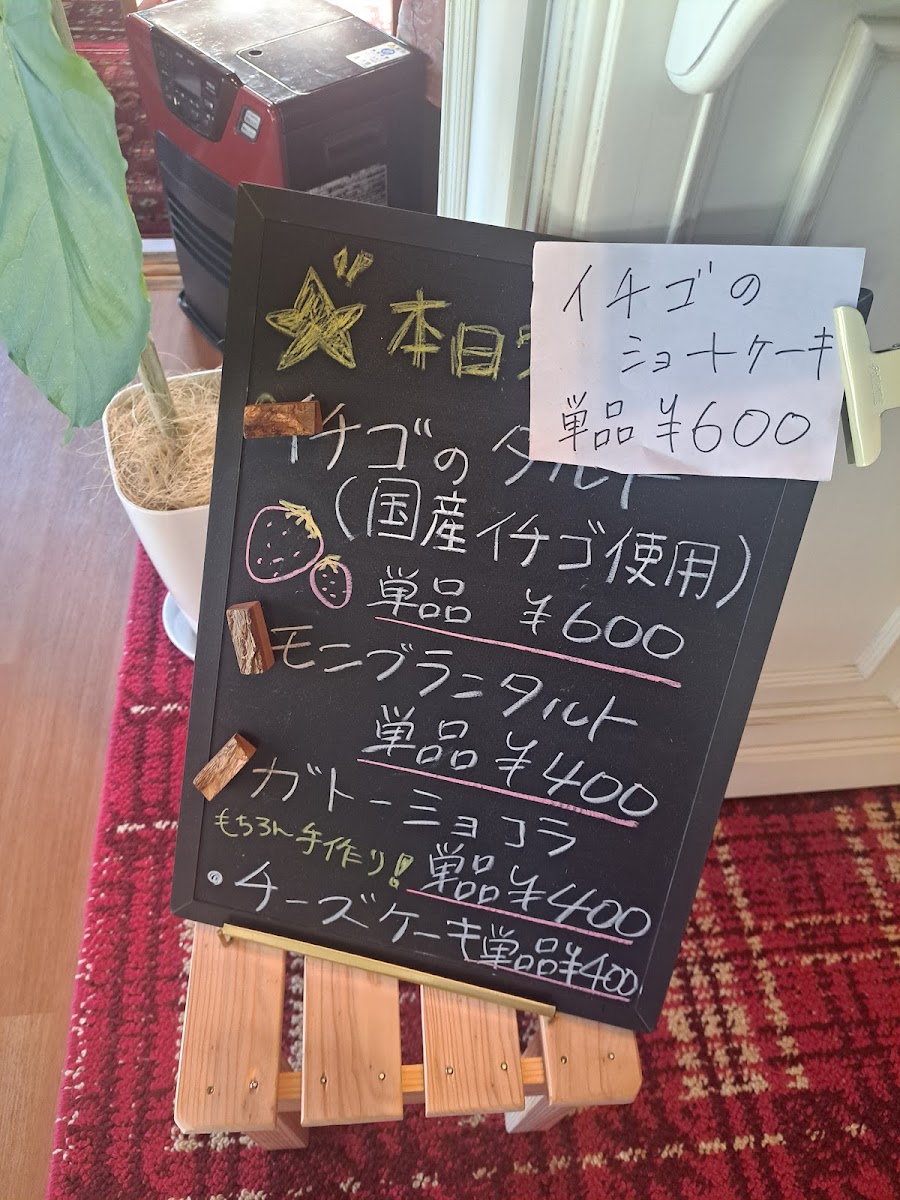 本日
イチゴの
ショートケーキ
単品 ¥600
イチゴのタルト
(国産イチゴ使用)
単品 ¥600
モンブランタルト
単品 ¥400
ガトーショコラ
もちろん手作り!
単品 ¥400
・チーズケーキ単品¥400